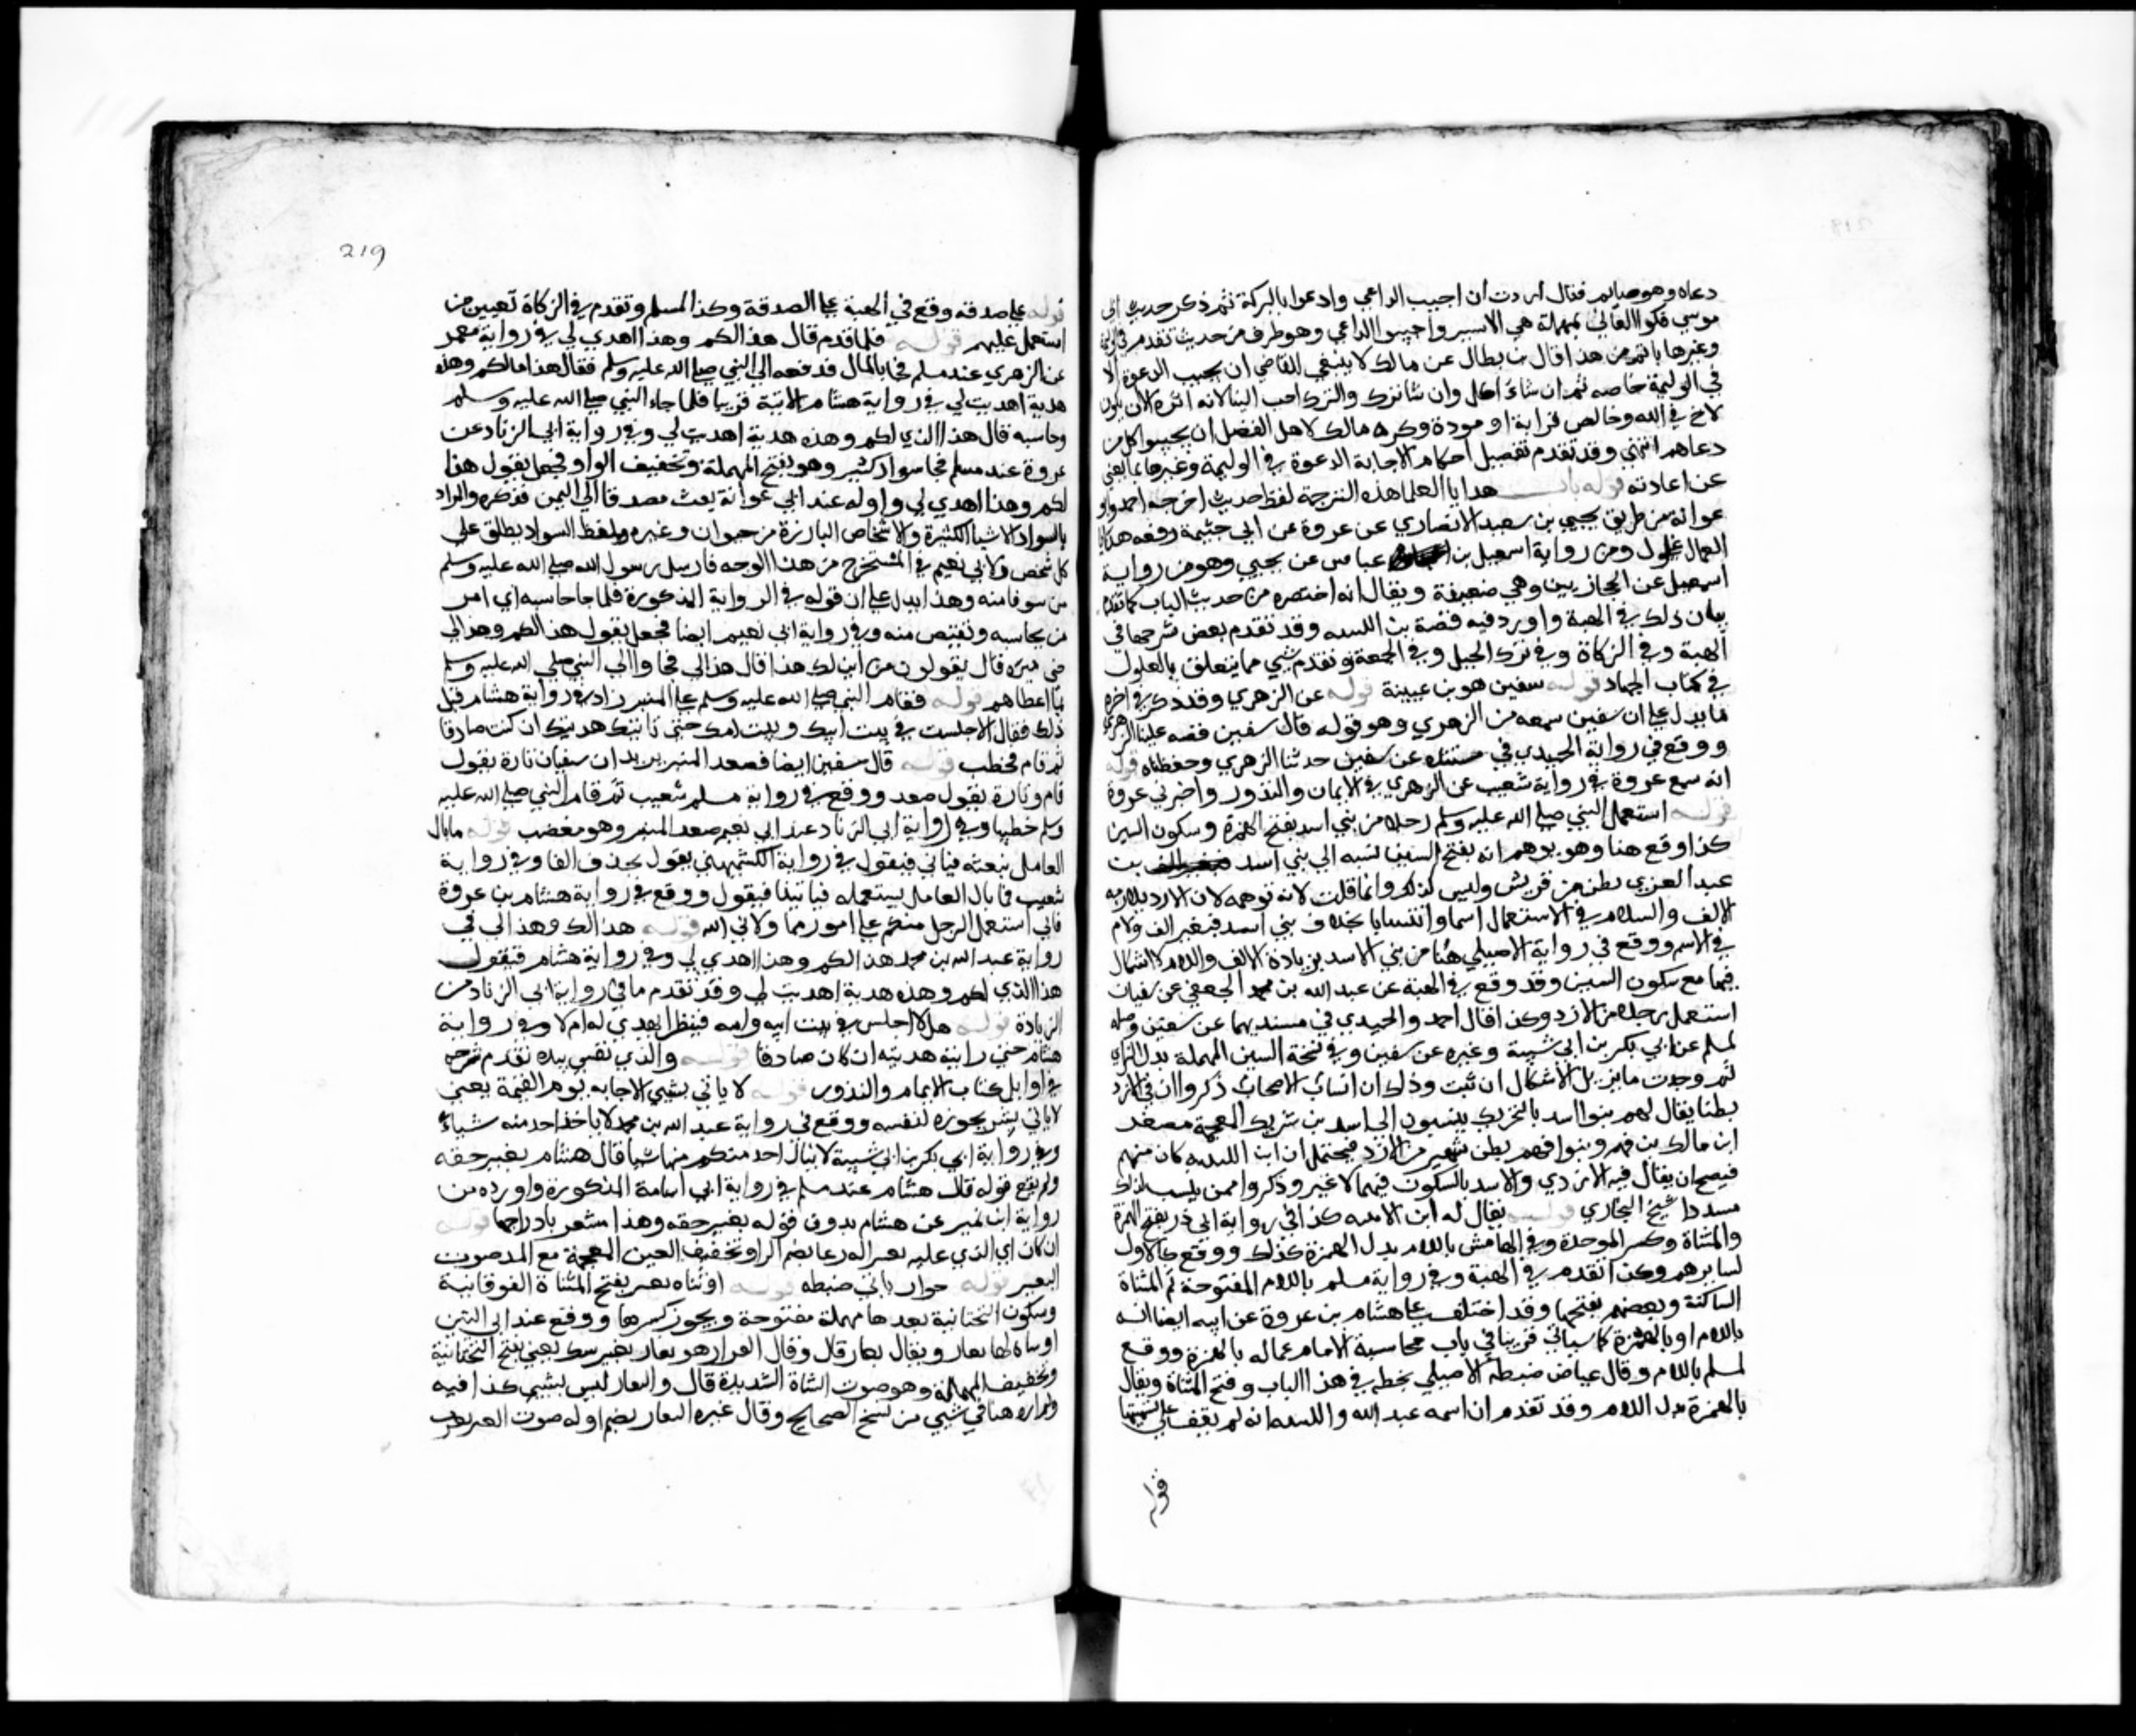 دعاه وهو صايم فقال اردت ان اجيب الداعي وادعوا بالبركة ثم ذكر حديث ابي
موسي فكوا العاني بمهملة هي الاسير واجيبوا الداعي وهو طرف من حديث تقدم في
وغيرها باتم من هذا قال بن بطال عن مالك لا ينبغي للقاضي ان يجيب الدعوة الا
في الوليمة خاصه ثم ان شاء اكل وان شا ترك والترك احب الينا لانه انزه الا ان يكون
لاخ في الله وخالص قرابة او مودة وكره مالك لاهل الفضل ان يجيبوا كل من
دعاهم انتهي وقد تقدم تفصيل احكام الاجابة الدعوة في الوليمة وغيرها بما يغني
عن اعادته قوله باب هدايا العمال هذه الترجمة لفظ حديث اخرجه احمد وابو
عوانة من طريق يحيي بن سعيد الانصاري عن عروة عن ابي حثيمة رفعه هدايا
العمال غلول ومن رواية اسمعيل بن عباس عن يحيي وهو من رواية
اسمعيل عن الحجازيين وهي ضعيفة ويقال انه اختصره من حديث الباب كما تقدم
بيان ذلك في الهبة واورد فيه قصة بن اللتبيه وقد تقدم بعض شرحها في
الهبة وفي الزكاة وفي ترك الحيل وفي الجمعة وتقدم شيي مما يتعلق بالغلول
في كتاب الجهاد قوله سفين هو بن عيينة قوله عن الزهري وقد ذكر في اخره
ما يدل علي ان سفين سمعه من الزهري وهو قوله قال سفين قصه علينا الزهري
ووقع في رواية الحميدي في مسنده عن سفين حدثنا الزهري وحفظناه قوله
انه سمع عروة في رواية شعيب عن الزهري في الايمان والنذور واخبرني عروة
قوله استعمل النبي صلي الله عليه وسلم رجلا من بني اسد بفتح الهمزة وسكون السين
كذا وقع هنا وهو يوهم انه بفتح السين نسبه الي بني اسد بن
عبد العزي بطن من قريش وليس كذلك وانما قلت لانه توهمه لان الازد بلازمه
الالف والسلام في الاستعمال اسما وانتسابا بخلاف بني اسد فبغير الف ولام
في الاسم ووقع في رواية الاصيلي هنا من بني الاسد بزيادة الالف واللام لا اشكال
فيها مع سكون السين وقد وقع في الهبة عن عبد الله بن محمد الجعفي عن سفيان
استعمل رجلا من الازد وكذا قال احمد والحميدي في مسنديهما عن سفين ومثله
لمسلم عن ابي بكر بن ابي شيبة وغيره عن سفين وفي نسخة السين المهملة بدل الزاي
ثم وجدت ما يزيل الاشكال ان ثبت وذلك ان انساب الاصحاب ذكروا ان في الازد
بطنا يقال لهم بنوا اسد بالتحريك ينسبون الي اسد بن شريك المعجمة مصغر
ابن مالك بن فهم وبنوا فهم بطن شهير من الازد فيحتمل ان ابن اللتبيه كان منهم
فيصح ان يقال فيه الازدي والاسد بالسكون فيهما لا غير وذكروا ممن ينسب لذلك
مسددا شيخ البخاري قوله يقال له ابن الاتبيه كذا في رواية ابي ذر بفتح الهمزة
والمثناة وكسر الموحدة وفي الهامش باللام بدل الهمزة كذلك ووقع كالاول
لسايرهم وكذا تقدم في الهبة وفي رواية مسلم باللام المفتوحة ثم المثناة
الساكنة وبعضهم بفتحها وقد اختلف علي هشام بن عروة عن ابيه ايضا انه
باللام او بالهمزة كما سياتي قريبا في باب محاسبة الامام عماله بالهمزة ووقع
لمسلم باللام وقال عياض ضبطه الاصيلي بخطه في هذا الباب وفتح المثناة ويقال
بالهمزة بدل اللام وقد تقدم ان اسمه عبد الله واللتبيه انه لم يقف علي تسميتها
قوله
219
قوله علي صدقه وقع في الهبة علي الصدقة وكذا لمسلم وتقدم في الزكاة تعيين من
استعمل عليهم قوله فلما قدم قال هذا لكم وهذا اهدي لي في رواية معمر
عن الزهري عند مسلم فجا بالمال فدفعه الي النبي صلي الله عليه وسلم فقال هذا مالكم وهذه
هدية اهديت لي في رواية هشام الاتية قريبا فلما جاء النبي صلي الله عليه وسلم
وحاسبه قال هذا الذي لكم وهذه هدية اهديت لي وفي رواية ابي الزناد عن
عروة عند مسلم فجا سواد كثير وهو بفتح المهملة وتخفيف الواو فجعل يقول هذا
لكم وهذا اهدي لي واوله عند ابي عوانة بعث مصدقا الي اليمن فذكره والمراد
بالسواد الاشيا الكثيرة والاشخاص البارزة من حيوان وغيره ولفظ السواد يطلق علي
كل شخص ولابي نعيم في المستخرج من هذا الوجه فارسل رسول الله صلي الله عليه وسلم
من سوفا منه وهذا يدل علي ان قوله في الرواية المذكورة فلما جا حاسبه اي امر
من يحاسبه ويقبض منه وفي رواية ابي نعيم ايضا فجعل يقول هذا لكم وهذا لي
حتي ميزه قال يقولون من اين لك هذا قال هذا لي فجاوا الي النبي صلي الله عليه وسلم
بما اعطاهم قوله فقام النبي صلي الله عليه وسلم علي المنبر زاد في رواية هشام قبل
ذلك فقال الا جلست في بيت ابيك وبيت امك حتي تاتيك هديتك ان كنت صادقا
ثم قام فخطب قوله قال سفين ايضا فصعد المنبر يريد ان سفيان تارة يقول
قام وتارة يقول صعد ووقع في رواية مسلم شعيب ثم قام النبي صلي الله عليه
وسلم خطيبا وفي رواية ابي الزناد عند ابي نعيم صعد المنبر وهو مغضب قوله ما بال
العامل نبعثه فياتي فيقول في رواية الكشميهني يقول بحذف الفا وفي رواية
شعيب فما بال العامل يستعمله فياتينا فيقول ووقع في رواية هشام بن عروة
فاني استعمل الرجل منكم علي امور مما ولاني الله قوله هذا لك وهذا لي في
رواية عبد الله بن محمد هذا لكم وهذا اهدي لي وفي رواية هشام فيقول
هذا الذي لكم وهذه هدية اهديت لي وقد تقدم ما في رواية ابي الزناد من
الزيادة قوله هلا جلس في بيت ابيه وامه فينظر ايهدي له ام لا وفي رواية
هشام حتي تاتيه هديته ان كان صادقا قوله والذي نفسي بيده تقدم شرحه
في اوايل كتاب الايمام والنذور قوله لا ياتي بشيي الا جابه يوم القيمة يعني
لا ياتي بشي يحوزه لنفسه ووقع في رواية عبد الله بن محمد لا ياخذ احد منه شياء
وفي رواية ابي بكر بن ابي شيبة لا ينال احد منكم منها شيا قال هشام بغير حقه
ولم يقع قوله قال هشام عند مسلم في رواية ابي اسامة المذكورة واورده من
رواية ابن نمير عن هشام بدون قوله بغير حقه وهذا مشعر بادراجها قوله
ان كان اي الذي عليه بعير اله رغا بضم الرا وتخفيف الغين المعجمة مع المد صوت
البعير قوله خوار ياتي ضبطه قوله او شاه تيعر بفتح المثناة الفوقانية
وسكون التحتانية بعدها مهملة مفتوحة ويجوز كسرها ووقع عند ابي التين
او شاه لها يعار ويقال يعار قال وقال القزاز هو يعار بغير شك يعني بفتح التحتانية
وتخفيف المهملة وهو صوت الشاة الشديدة قال واليعار ليس بشيي كذا فيه
ولم اره هنا في شيي من نسخ الصحايح وقال غيره اليعار بضم اوله صوت المعز